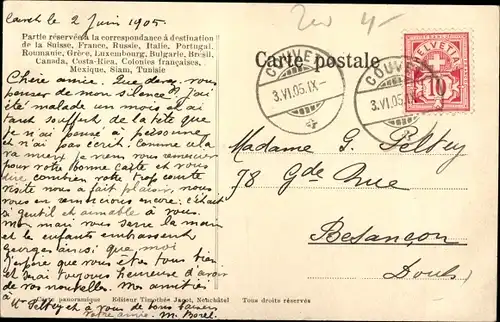 Couvet le 2 Juin 1905.
Partie réservée à la correspondance à destination
de la Suisse, France, Russie, Italie, Portugal,
Roumanie, Grèce, Luxembourg, Bulgarie, Brésil,
Canada, Costa-Rica, Colonies françaises,
Mexique, Siam, Tunisie
Chère amie. Que devez vous
penser de mon silence? J'ai
été malade un mois et ai
tant souffert de la tête que
je n'ai pensé à personne
et n'ai pas écrit. Comme cela
va mieux je viens vous remercier
pour votre bonne carte et vous
dire combien votre trop courte
visite nous a fait plaisir, nous
vous en remercions encore. c'était
si gentil et aimable à vous.
Mon mari vous serre la main
et les enfants embrassent
Georges ainsi que moi
J'espère que vous êtes tous bien
et serai toujours heureuse d'avoir
de vos nouvelles. Mes amitiés
à Mr Peltey et à vous de tous baisers
votre amie. M. Borel.
Carte panoramique Editeur Timothée Jacot, Neuchâtel Tous droits réservés
4.-
Carte postale
COUVET
3.VI.05.IX-
COUVET
3.VI.05.IX
HELVETIA
10
Madame G. Peltey
78 Gde Rue
Besançon
Doubs